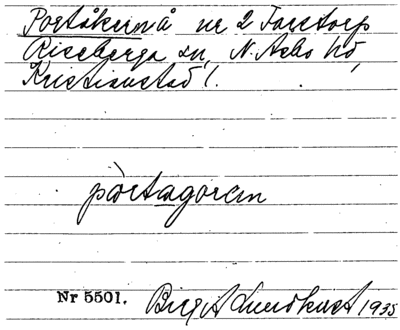 Portåkern å nr 2 Forstorp
Riseberga sn, N. Åsbo hd,
Kristianstad l.
pòrtagoren
Nr 5501. Birgit Lundkvist 1935